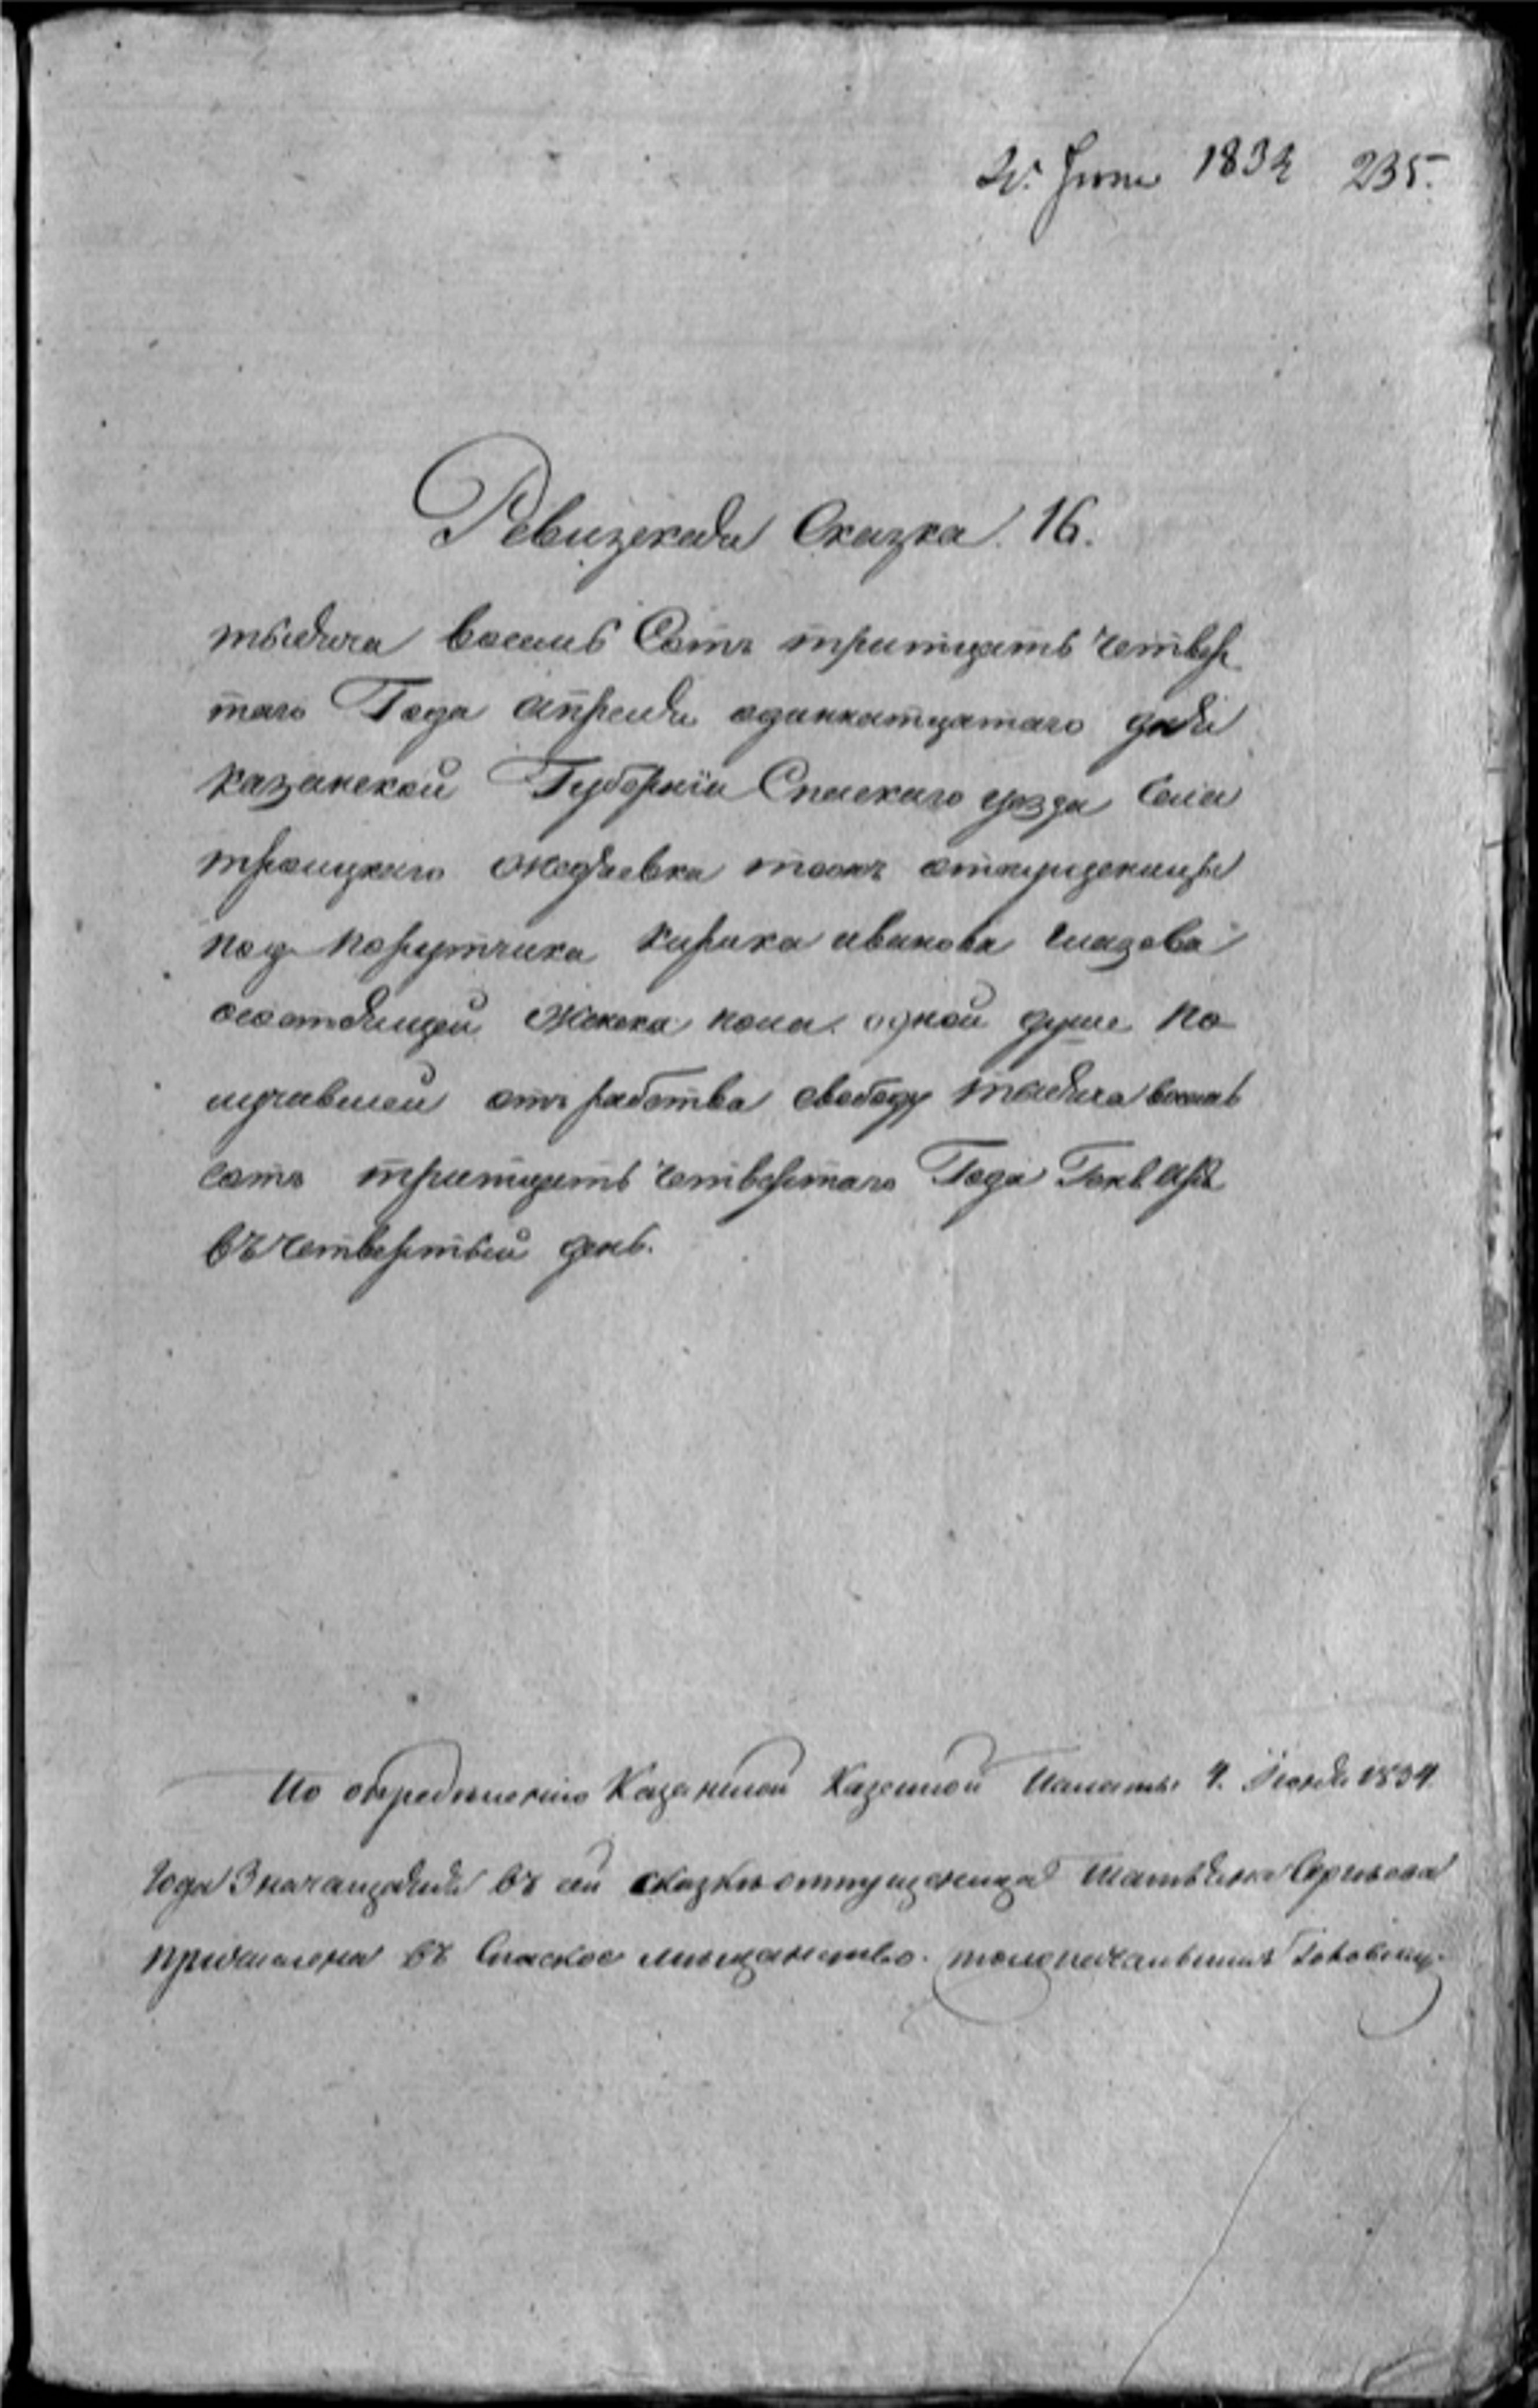 1834 235.
Ревизская Сказка 16.
тысяча восемь Сотъ тритцать четвер
таго Года апреля одиннатцатаго дня
казанской Губернїи Спаскаго уезда Села
троицкаго тожъ отпущеницы
под порутчика кирика иванова глазова
состоящей женска пола одной душе по
лучавшей отъ рабства свободу тысяча восемь
сотъ тритцать четвертаго Года Генваря
въ четвертый день.
По определенію Казанской Казенной Палаты 4. 1834
года Значащаяся въ сей сказкѣ отпущеница Татьяна
причислена въ Спаское мѣщанство.